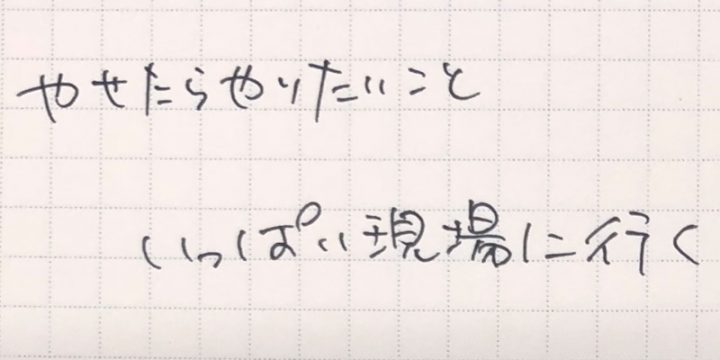 やせたらやりたいこと
いっぱい現場に行く